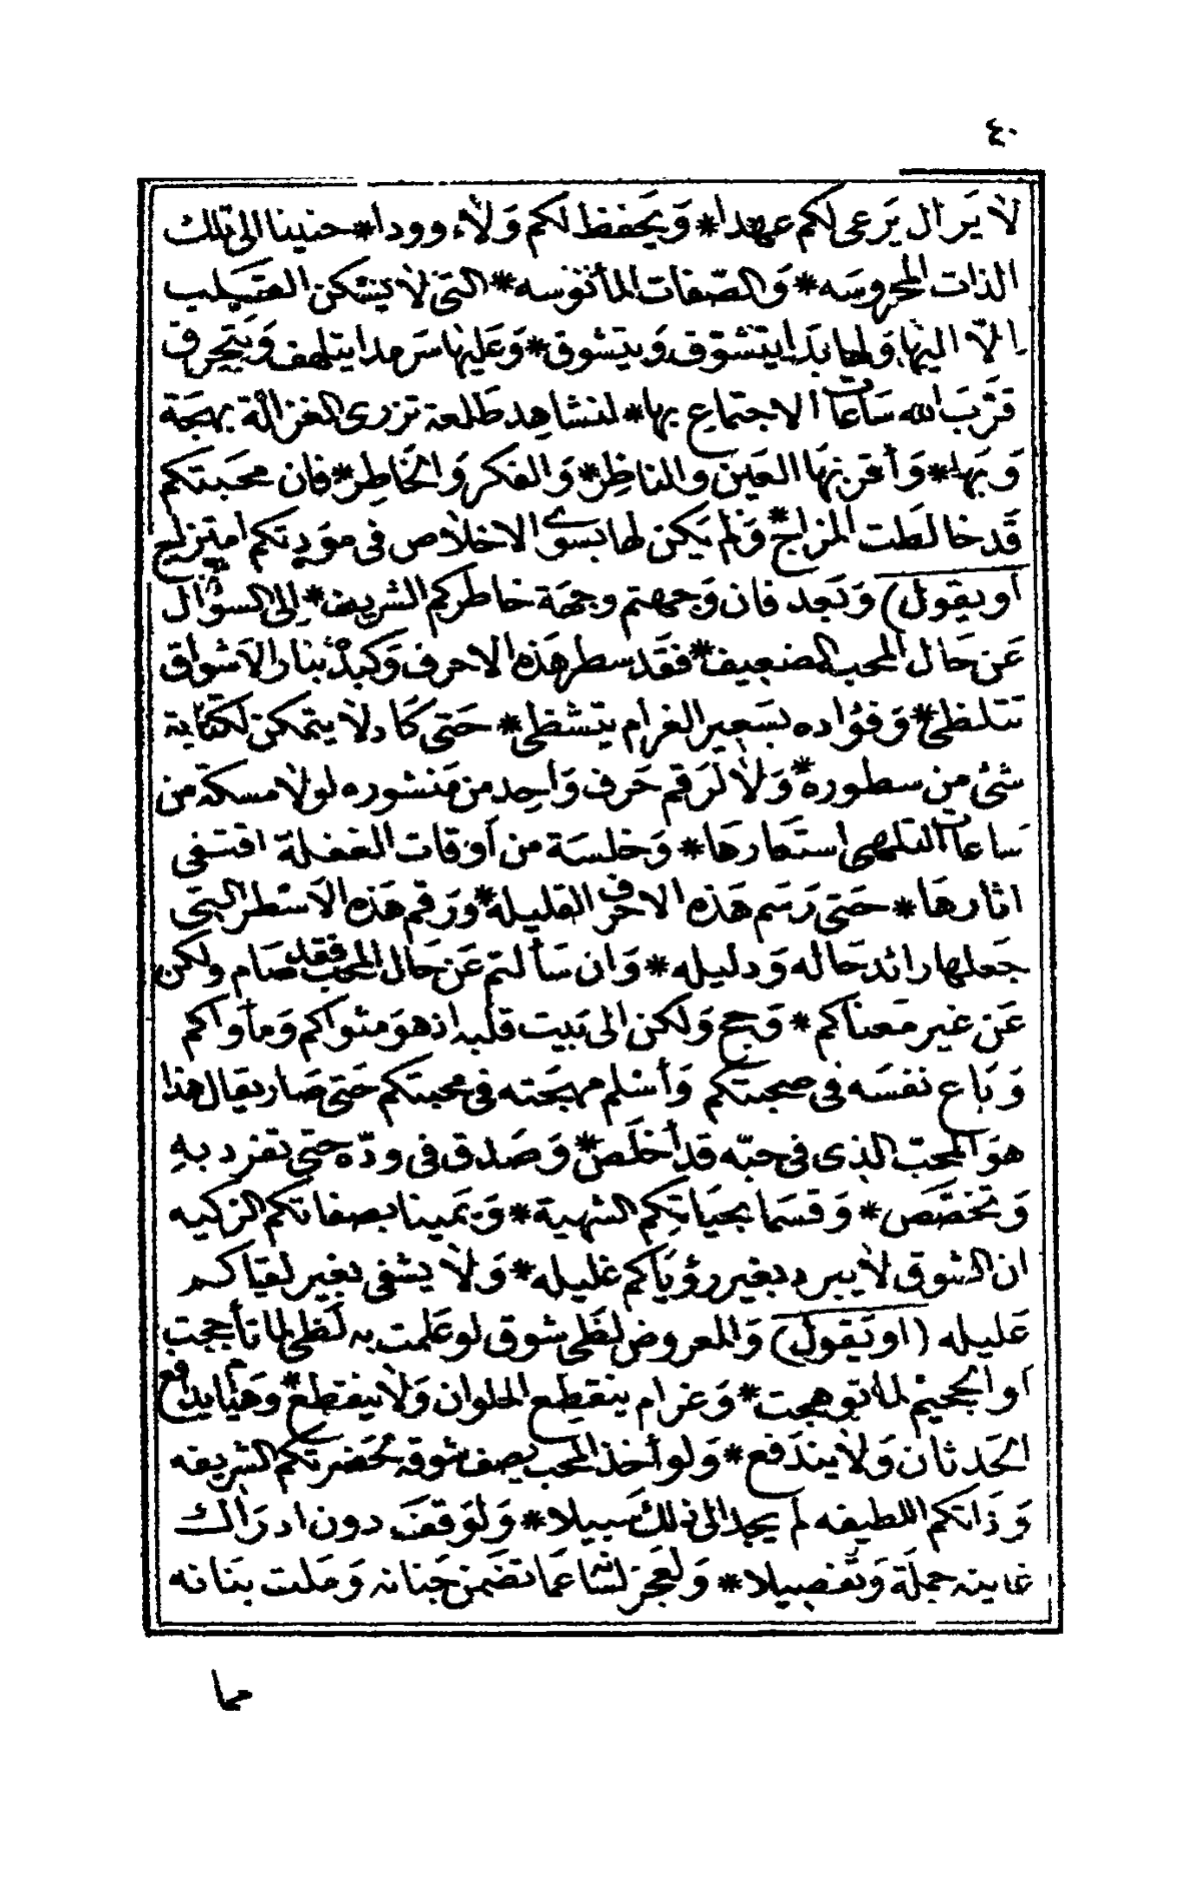 ٤٠
لا يَزال يَرعى لكم عهدا * وَيحفظ لكم وَلاء وودا * حنينا الى تلك
الذات المحروسَه * وَالصّفات المأنوسه * التى لا يشكن القَلب
الاّ اليها وَلها بَدَا يتشوّق وَيتسوق * وَعَليها سَرمدا يتلهف وَيتحرق
قرَّبَ الله سَاعات الاجتماع بها * لنشاهد طَلعة تزرى الغزالة بهجَة
وَبَهاء * وَأقر بهَا العَين والناظِر * وَالفكر وَالخاطِر * فان محَبتكم
قَد خالطَت المزاج * وَلم يَكن لها بسوى الاخلاص فى موَدتكم امتزاج
(أو يقول) وَبَعد فان وَجهتم وجهَة خاطركم الشريف * الى السؤال
عَن حَال المحب الضعيف * فقَد سطر هَذه الاحرف وَكبدهُ بنار الاشواق
تتلظى * وَفؤاده بسَعير الغرام يتشظى * حَتى كَاد لا يتمكن لكتابة
شئ من سطوره * وَلا لرَقم حَرف وَاحِد من مَنشوره لولا مسكة من
سَاعات التلهى استعَارهَا * وَخلسَة من أوقات الغفلة اقتفى
اثارهَا * حَتى رَسَم هَذه الاحرف القليله * ورَقم هَذه الاَسْطر التى
جَعلها رائد حَاله وَدليله * وَان سَألتم عَن حَال المحب فقد صَام ولكن
عَن غير مَعناكم * وَحج وَلكن الى بَيت قلبه اذ هوَ مثواكم وَمأواكم
وَبَاع نفسَه فى صحبتكم وَأسْلم مهجَته فى محبتكم حَتى صَار يقال هذا
هوَ المحبّ الذى فى حبّه قد أخلَص * وَصَدق فى ودّه حَتى تفرد بهِ
وَتخصّصَ * وَقسَما بحَيَاتكِم الشهية * وَيَمينا بصفاتكم الزكيه
ان الشوق لا يبرد بغير رؤيَاكم غليله * وَلا يشفى بغير لقيَاكم
عَليله (أو يَقول) وَالمعروض لظَى شوق لو عَلمت به لَظى لما تأججت
أو الجحيمْ لما توهجت * وَغرام ينقطِع الملوان وَلا ينقطع * وَهيَام يدافع
الحَدثان وَلا يندَفع * وَلو أخذ المحب يصف شوقه لحَضرتكم الشريفه
وَذَاتكم اللطيفه لم يجد الى ذلك سَبيلا * وَلوَقفَ دون ادرَاك
غايته جملَة وَتفصيلا * وَلعجز لسَانا عما تضَمن جَنانه وَمَلت بنَانه
مما